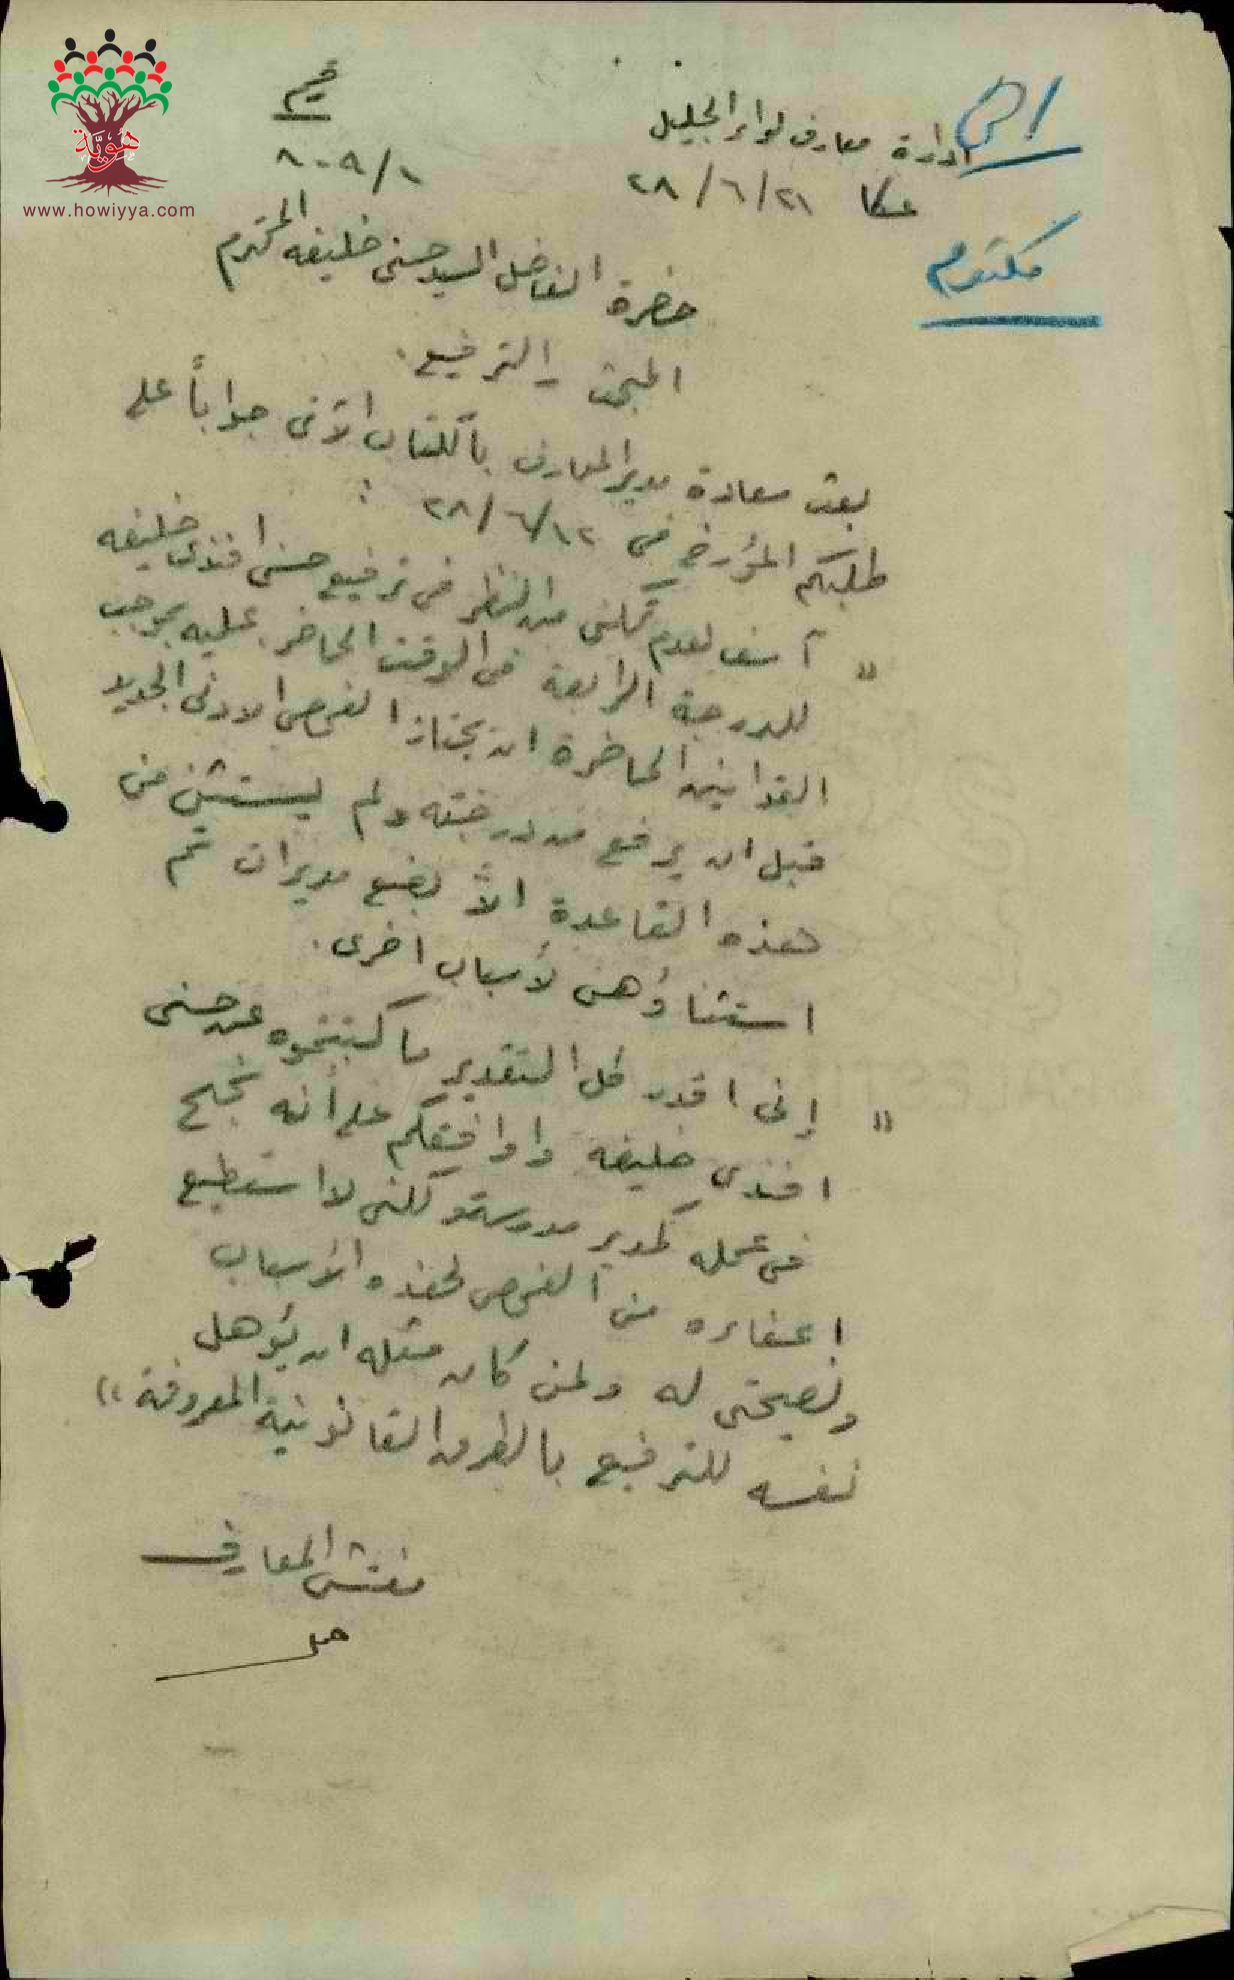 هوية
www.howiyya.com
ادارة معارف لواء الجليل
عكا ٢١/٦/٢٨
٨٠٩/١
مكتوم
حضرة الفاضل السيد حسني خليفه المحترم
المبحث - الترفيع.
بعث سعادة مدير المعارف بالكتاب الآتي جواباً على
طلبكم المؤرخ في ١٢/٦/٢٨ :
" آسف لعدم تمكني من النظر في ترفيع حسني افندي خليفه
للدرجة الرابعة في الوقت الحاضر. عليه بموجب
القوانين الحاضرة ان يجتاز الفحص الادنى الجديد
قبل ان يرفع من درجته ولم يستثن من
هذه القاعدة الاّ بضع مديرات تم
استثناؤهن لأسباب اخرى.
" إني اقدر كل التقدير ما كتبتموه عن حسني
افندي خليفه واوافقكم على أنه نجح
في عمله كمدير مدرسة ولكني لا استطيع
اعفاءه من الفحص لهذه الأسباب
ونصيحتي له ولمن كان مثله ان يؤهل
نفسه للترفيع بالطرق القانونية المعروفة"
مفتش المعارف